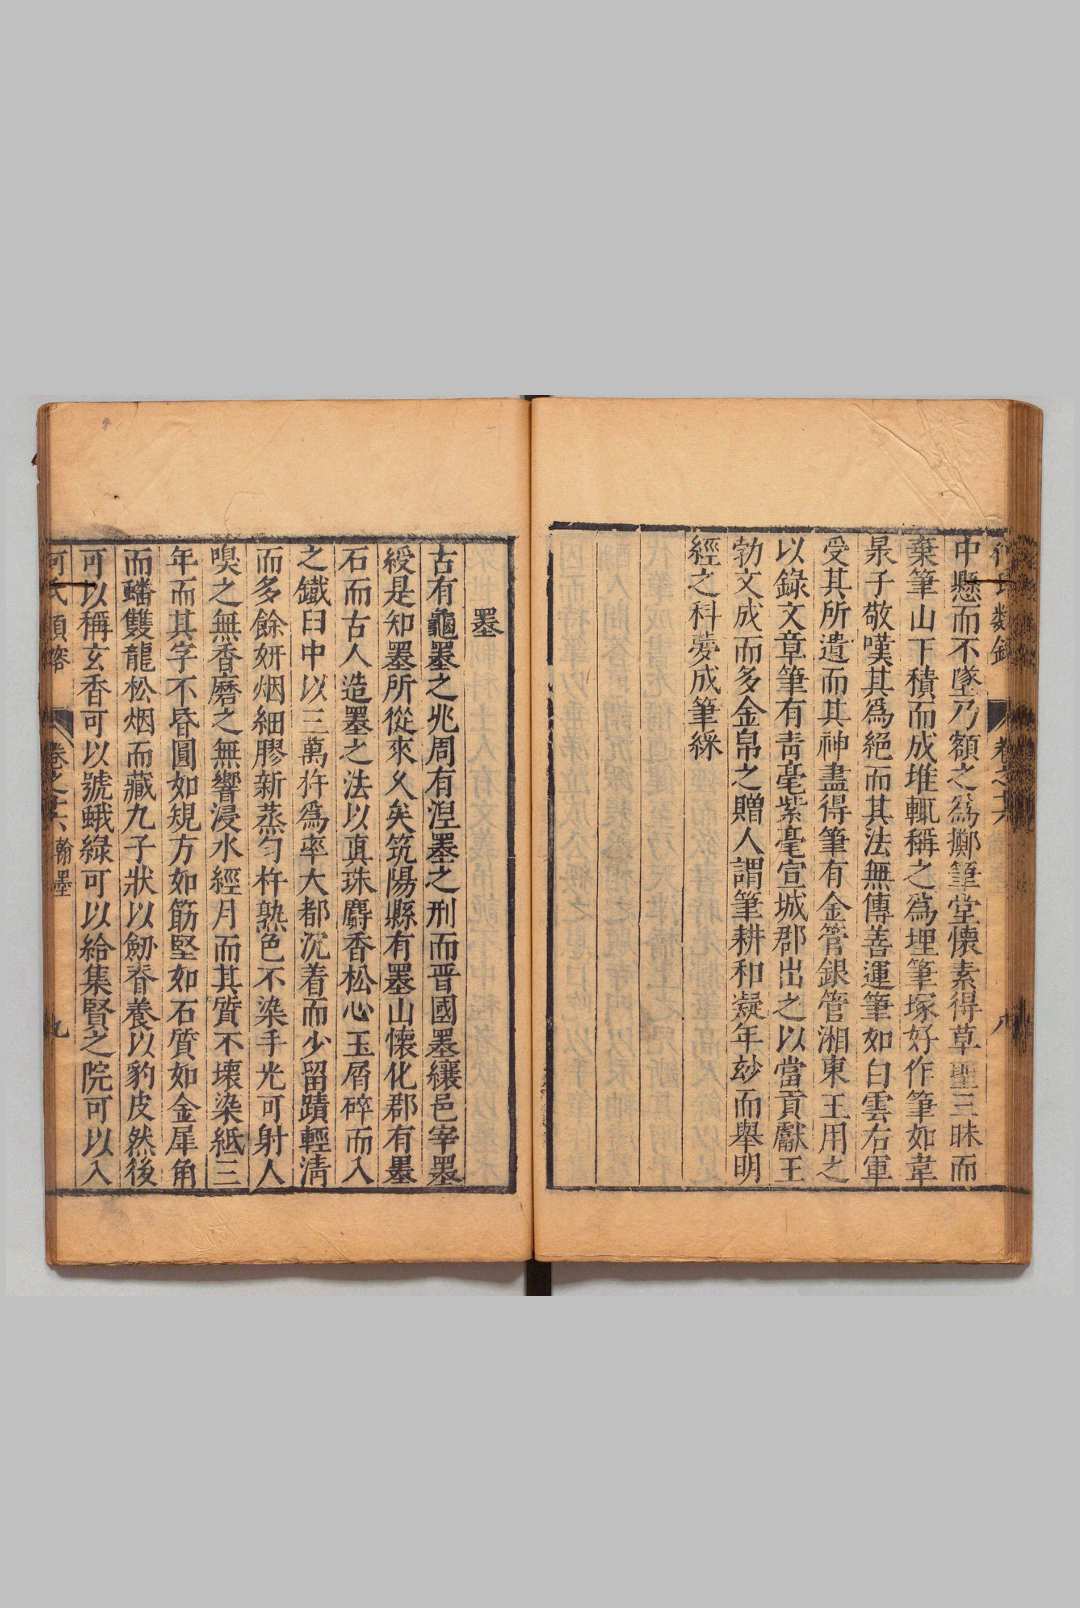 中懸而不墜乃額之爲擲筆堂懷素得草聖三昧而
棄筆山下積而成堆輒稱之爲埋筆塚好作筆如韋
㫤子敬嘆其爲絕而其法無傳善運筆如白雲右軍
受其所遺而其神盡得筆有金管銀管湘東王用之
以錄文章筆有青毫紫毫宣城郡出之以當貢獻王
勃文成而多金帛之贈人謂筆耕和凝年玅而舉明
經之科夢成筆綵
卷之六
八
墨
古有龜墨之兆周有涅墨之刑而晋國墨縗邑宰墨
綬是知墨所從來久矣筑陽縣有墨山懷化郡有墨
石而古人造墨之法以眞珠麝香松心玉屑碎而入
之鐵臼中以三萬杵爲率大都沉着而少留蹟輕淸
而多餘妍烟細膠新蒸勻杵熟色不染手光可射人
嗅之無香磨之無響浸水經月而其質不壞染紙三
年而其字不昏圓如規方如筋堅如石質如金犀角
而蟠雙龍松烟而藏九子狀以劒脊養以豹皮然後
可以稱玄香可以號蛾綠可以給集賢之院可以入
何氏類鎔 卷之六 翰墨 九